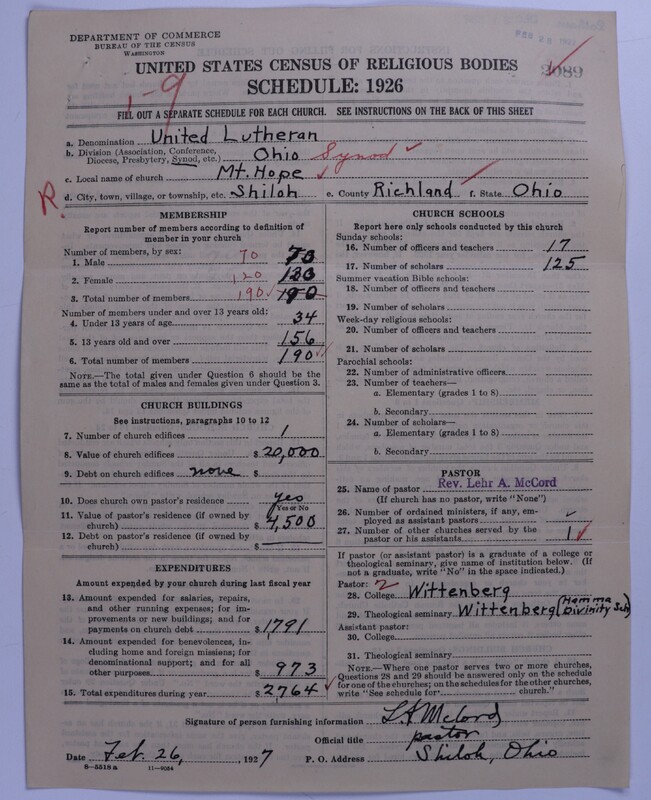 DEPARTMENT OF COMMERCE
BUREAU OF THE CENSUS
WASHINGTON
UNITED STATES CENSUS OF RELIGIOUS BODIES
SCHEDULE: 1926
1-9
FILL OUT A SEPARATE SCHEDULE FOR EACH CHURCH. SEE INSTRUCTIONS ON THE BACK OF THIS SHEET
a. Denomination United Lutheran
b. Division (Association, Conference, Diocese, Presbytery, Synod, etc.) Ohio Synod
c. Local name of church Mt. Hope
R. d. City, town, village, or township, etc. Shiloh e. County Richland f. State Ohio
MEMBERSHIP
Report number of members according to definition of
member in your church
Number of members, by sex:
1. Male 70 70
2. Female 120 120
3. Total number of members 190 190
Number of members under and over 13 years old:
4. Under 13 years of age 34
5. 13 years old and over 156
6. Total number of members 190
NOTE.—The total given under Question 6 should be
same as the total of males and females given under Question 3.
CHURCH BUILDINGS
See instructions, paragraphs 10 to 12
7. Number of church edifices 1
8. Value of church edifices $ 20,000
9. Debt on church edifices none $
10. Does church own pastor's residence yes
Yes or No
11. Value of pastor's residence (if owned by
church) $ 4,500
12. Debt on pastor's residence (if owned by
church) $
EXPENDITURES
Amount expended by your church during last fiscal year
13. Amount expended for salaries, repairs,
and other running expenses; for im-
provements or new buildings; and for
payments on church debt $ 1791
14. Amount expended for benevolences, in-
cluding home and foreign missions; for
denominational support; and for all
other purposes $ 973
15. Total expenditures during year $ 2764
CHURCH SCHOOLS
Report here only schools conducted by this church
Sunday schools:
16. Number of officers and teachers 17
17. Number of scholars 125
Summer vacation Bible schools:
18. Number of officers and teachers
19. Number of scholars
Week-day religious schools:
20. Number of officers and teachers
21. Number of scholars
Parochial schools:
22. Number of administrative officers
23. Number of teachers—
a. Elementary (grades 1 to 8)
b. Secondary
24. Number of scholars—
a. Elementary (grades 1 to 8)
b. Secondary
PASTOR
25. Name of pastor Rev. Lehr A. McCord
(If church has no pastor, write "None")
26. Number of ordained ministers, if any, em-
ployed as assistant pastors
27. Number of other churches served by the
pastor or his assistants 1
If pastor (or assistant pastor) is a graduate of a college or
theological seminary, give name of institution below. (If
not a graduate, write "No" in the space indicated.)
Pastor: 2
28. College Wittenberg
29. Theological seminary Wittenberg (Hamma Divinity Sch)
Assistant pastor:
30. College
31. Theological seminary
NOTE.—Where one pastor serves two or more churches,
Questions 28 and 29 should be answered only on the schedule
for one of the churches; on the schedules for the other churches,
write "See schedule for church."
Signature of person furnishing information L A McCord
Official title pastor
Date Feb. 26, 1927 P. O. Address Shiloh, Ohio
8-5518a 11-9054